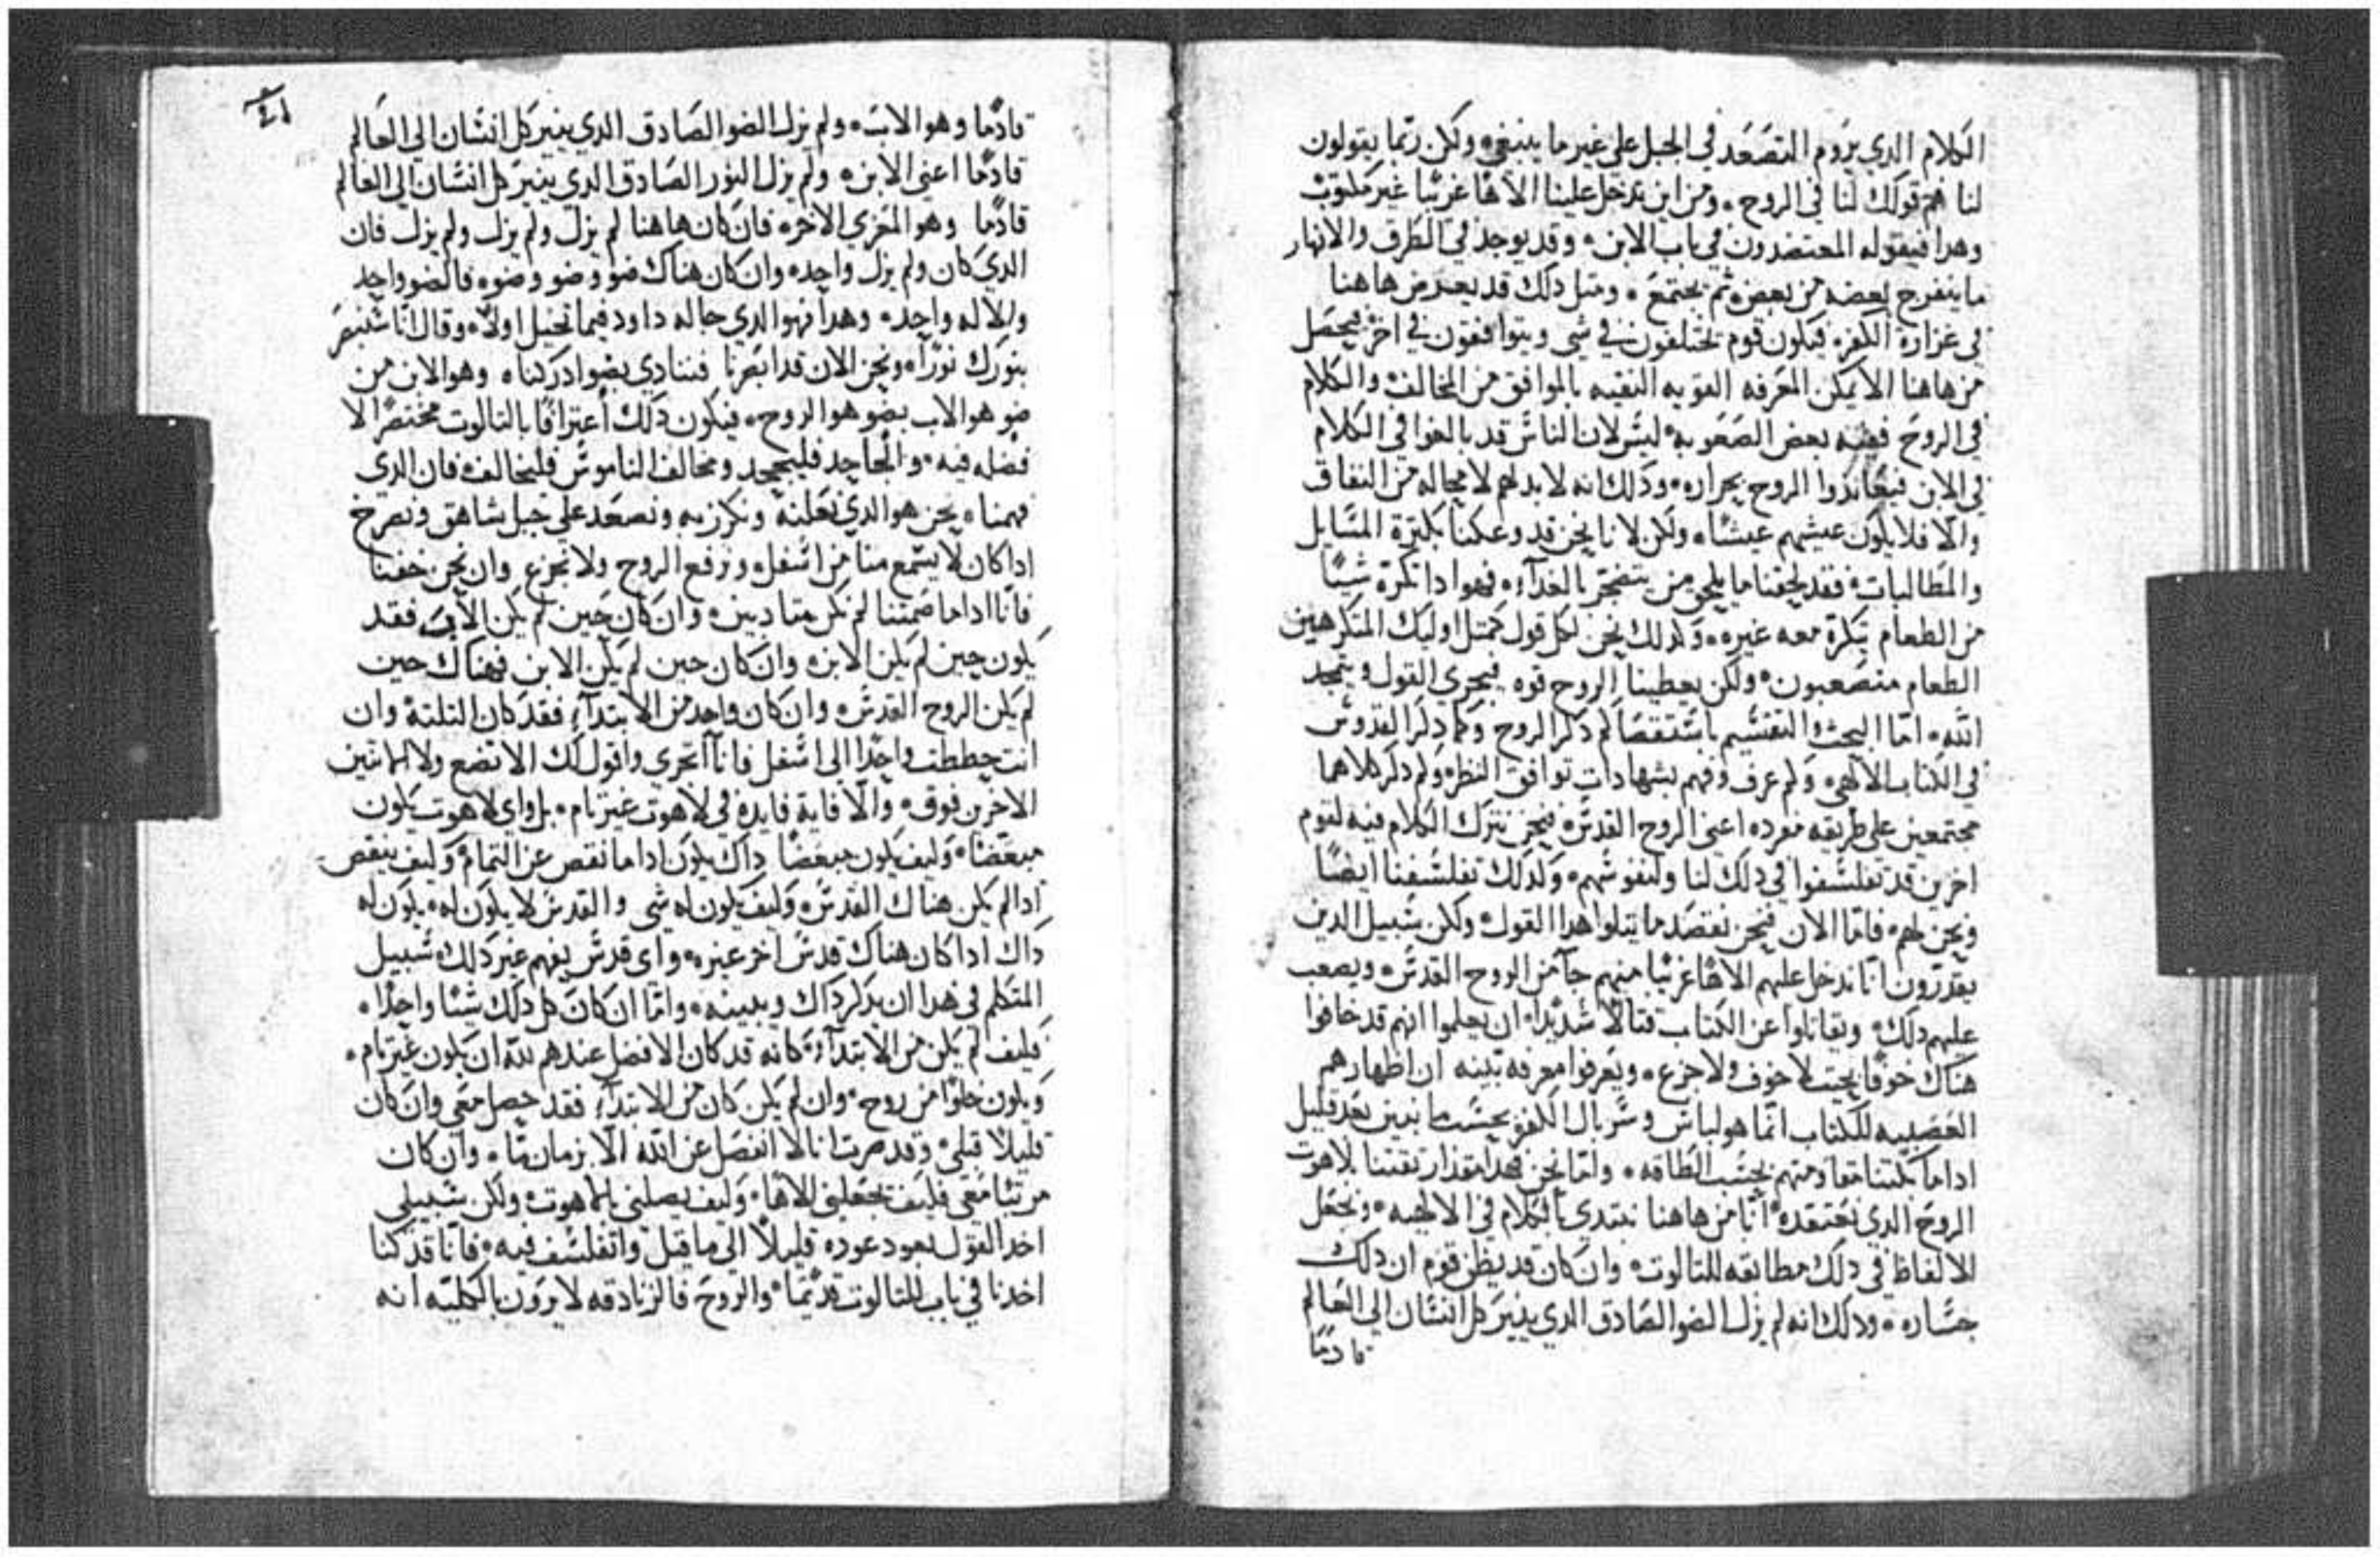 الكلام الذي يروم التصعد في الجبل علي غير ما ينبغي ولكن ربما يقولون
لنا فم قولك لنا في الروح ومن اين تدخل علينا الاهًا غريبًا غير مكتوب
وهدا فيقوله المعتضدون في باب الابن وقد يوجد في الطرق والانهار
ما ينفرج بعضه من بعض ثم يجتمع ومتل دلك قد يعرض هاهنا
في غزارة الكفر فيكون قوم يختلفون في شي ويتوافقون في اخر فيحصل
من هاهنا الا يمكن المعرفه القويه النقيه بالموافق من المخالف والكلام
في الروح ففيه بعض الصعوبه ليس لان الناس قد بالغوا في الكلام
في الابن فيعاندوا الروح بحراره ودلك انه لا بد لهم لا محاله من النفاق
والا فلا يكون عيشهم عيشًا ولكن لانا نحن قد وعكنا بكترة المسايل
والمطالبات فقد لحقنا ما يلحق من يتضجر بالغدآء فهو ادا تكره شيئًا
من الطعام تكره معه غيره ولدلك نحن لكل قول كمتل اوليك المتكرهين
الطعام متصعبون ولكن يعطينا الروح قوه فيجري القول ويتمجد
الله اما البحث والتقسيم باستقصا كم دكر الروح وكم دكر القدوس
في الكتاب الالهي وكم عرف وفهم بشهادات توافق النظر وكم دكر كلاهما
مجتمعين علي طريقه مفرده اعني الروح القدس فنحن نترك الكلام فيه لقوم
اخرين قد تفلسفوا في دلك لنا ولنفوسهم وكدلك تفلسفنا ايضًا
ونحن لهم فاما الان فنحن نقصد ما يتلوا هدا القول ولكن سبيل الدين
يقدرون انا ندخل عليهم الاهًا غريبًا منهم جآ من الروح القدس ويصعب
عليهم دلك ويقاتلوا عن الكتاب قتالًا شديدًا ان يعلموا انهم قد خافوا
هناك خوفًا بحيت لا خوف ولا جزع ويعرفوا معرفه بينه ان اظهارهم
العصبيه للكتاب انما هو لباس وسربال الكفر بحسب ما نبين بعد قليل
ادا ما كتبنا مقاومتهم بحسب الطاقه وانما نحن فهدا مقدار تقتنا بلاهوت
الروح الدي نعتقده انا من هاهنا نبتدي بالكلام في الالهيه ونجعل
الالفاظ في دلك مطابقه للتالوت وان كان قد يظن قوم ان دلك
جساره ودلك انه لم يزل الضو الصادق الدي ينير كل انسان الي العالم
قادمًا
قادمًا وهو الاب ولم يزل الضو الصادق الدي ينير كل انسان الي العالم
قادمًا اعني الابن ولم يزل النور الصادق الدي ينير كل انسان الي العالم
قادمًا وهو المعزي الاخر فان كان هاهنا لم يزل ولم يزل ولم يزل فان
الدي كان ولم يزل واحد وان كان هناك ضو وضو وضو فالضو واحد
والاله واحد وهدا فهو الدي خاله داود فيما تخيل اولًا وقال انا سنبصر
بنورك نورًا ونحن الان قد ابصرنا فننادي بضو ادركناه وهو الابن من
ضو هو الاب بضو هو الروح فيكون دلك اعترافًا بالتالوت مختصرًا لا
فضله فيه والجاحد فليجحد ومخالف الناموس فليخالف فان الدي
فهمناه نحن هو الدي نعلنه ونكرز به ونصعد علي جبل شاهق ونصرخ
ادا كان لا يسمع منا من اسفل ونرفع الروح ولا نجزع وان نحن خفنا
فانا ادا ما صمتنا لم نكن منادين وان كان حين لم يكن الاب فقد
يكون حين لم يكن الابن وان كان حين لم يكن الابن فهناك حين
لم يكن الروح القدس وان كان واحد من الابتدآء فقد كان التلتة وان
انت حططت واحدًا الي اسفل فانا اتجري واقول لك الا تضع ولا الاتنين
الاخرين فوق والا فاية فايدة في لاهوت غير تام بل واي لاهوت يكون
مبعضًا وكيف يكون مبعضًا داك يكون ادا ما نقص عن التمام وكيف ينقص
ادا لم يكن هناك القدس وكيف يكون له شي والقدس لا يكون له يكون له
داك ادا كان هناك قدس اخر غيره واي قدس يفهم غير دلك سبيل
المتكلم في هدا ان يدكر داك ويبينه واما ان كان كل دلك شيئًا واحدًا
فكيف لم يكن من الابتدآء كانه قد كان الافضل عندهم لله ان يكون غير تام
ويكون خلوًا من روح وان لم يكن كان من الابتدآء فقد حصل معي وان كان
قليلًا قبلي وقد صرت انا لا انفصل عن الله الا بزمان ما وان كان
مرتبًا معي فكيف تجعلني الاهًا وكيف يصلني بلاهوت ولكن سبيلي
اخد القول بعود عوده قليلًا الي ما قبل واتفلسف فيه فانا قد كنا
اخدنا في باب التالوت قديمًا والروح فالزنادقه لا يرون بالكليه انه